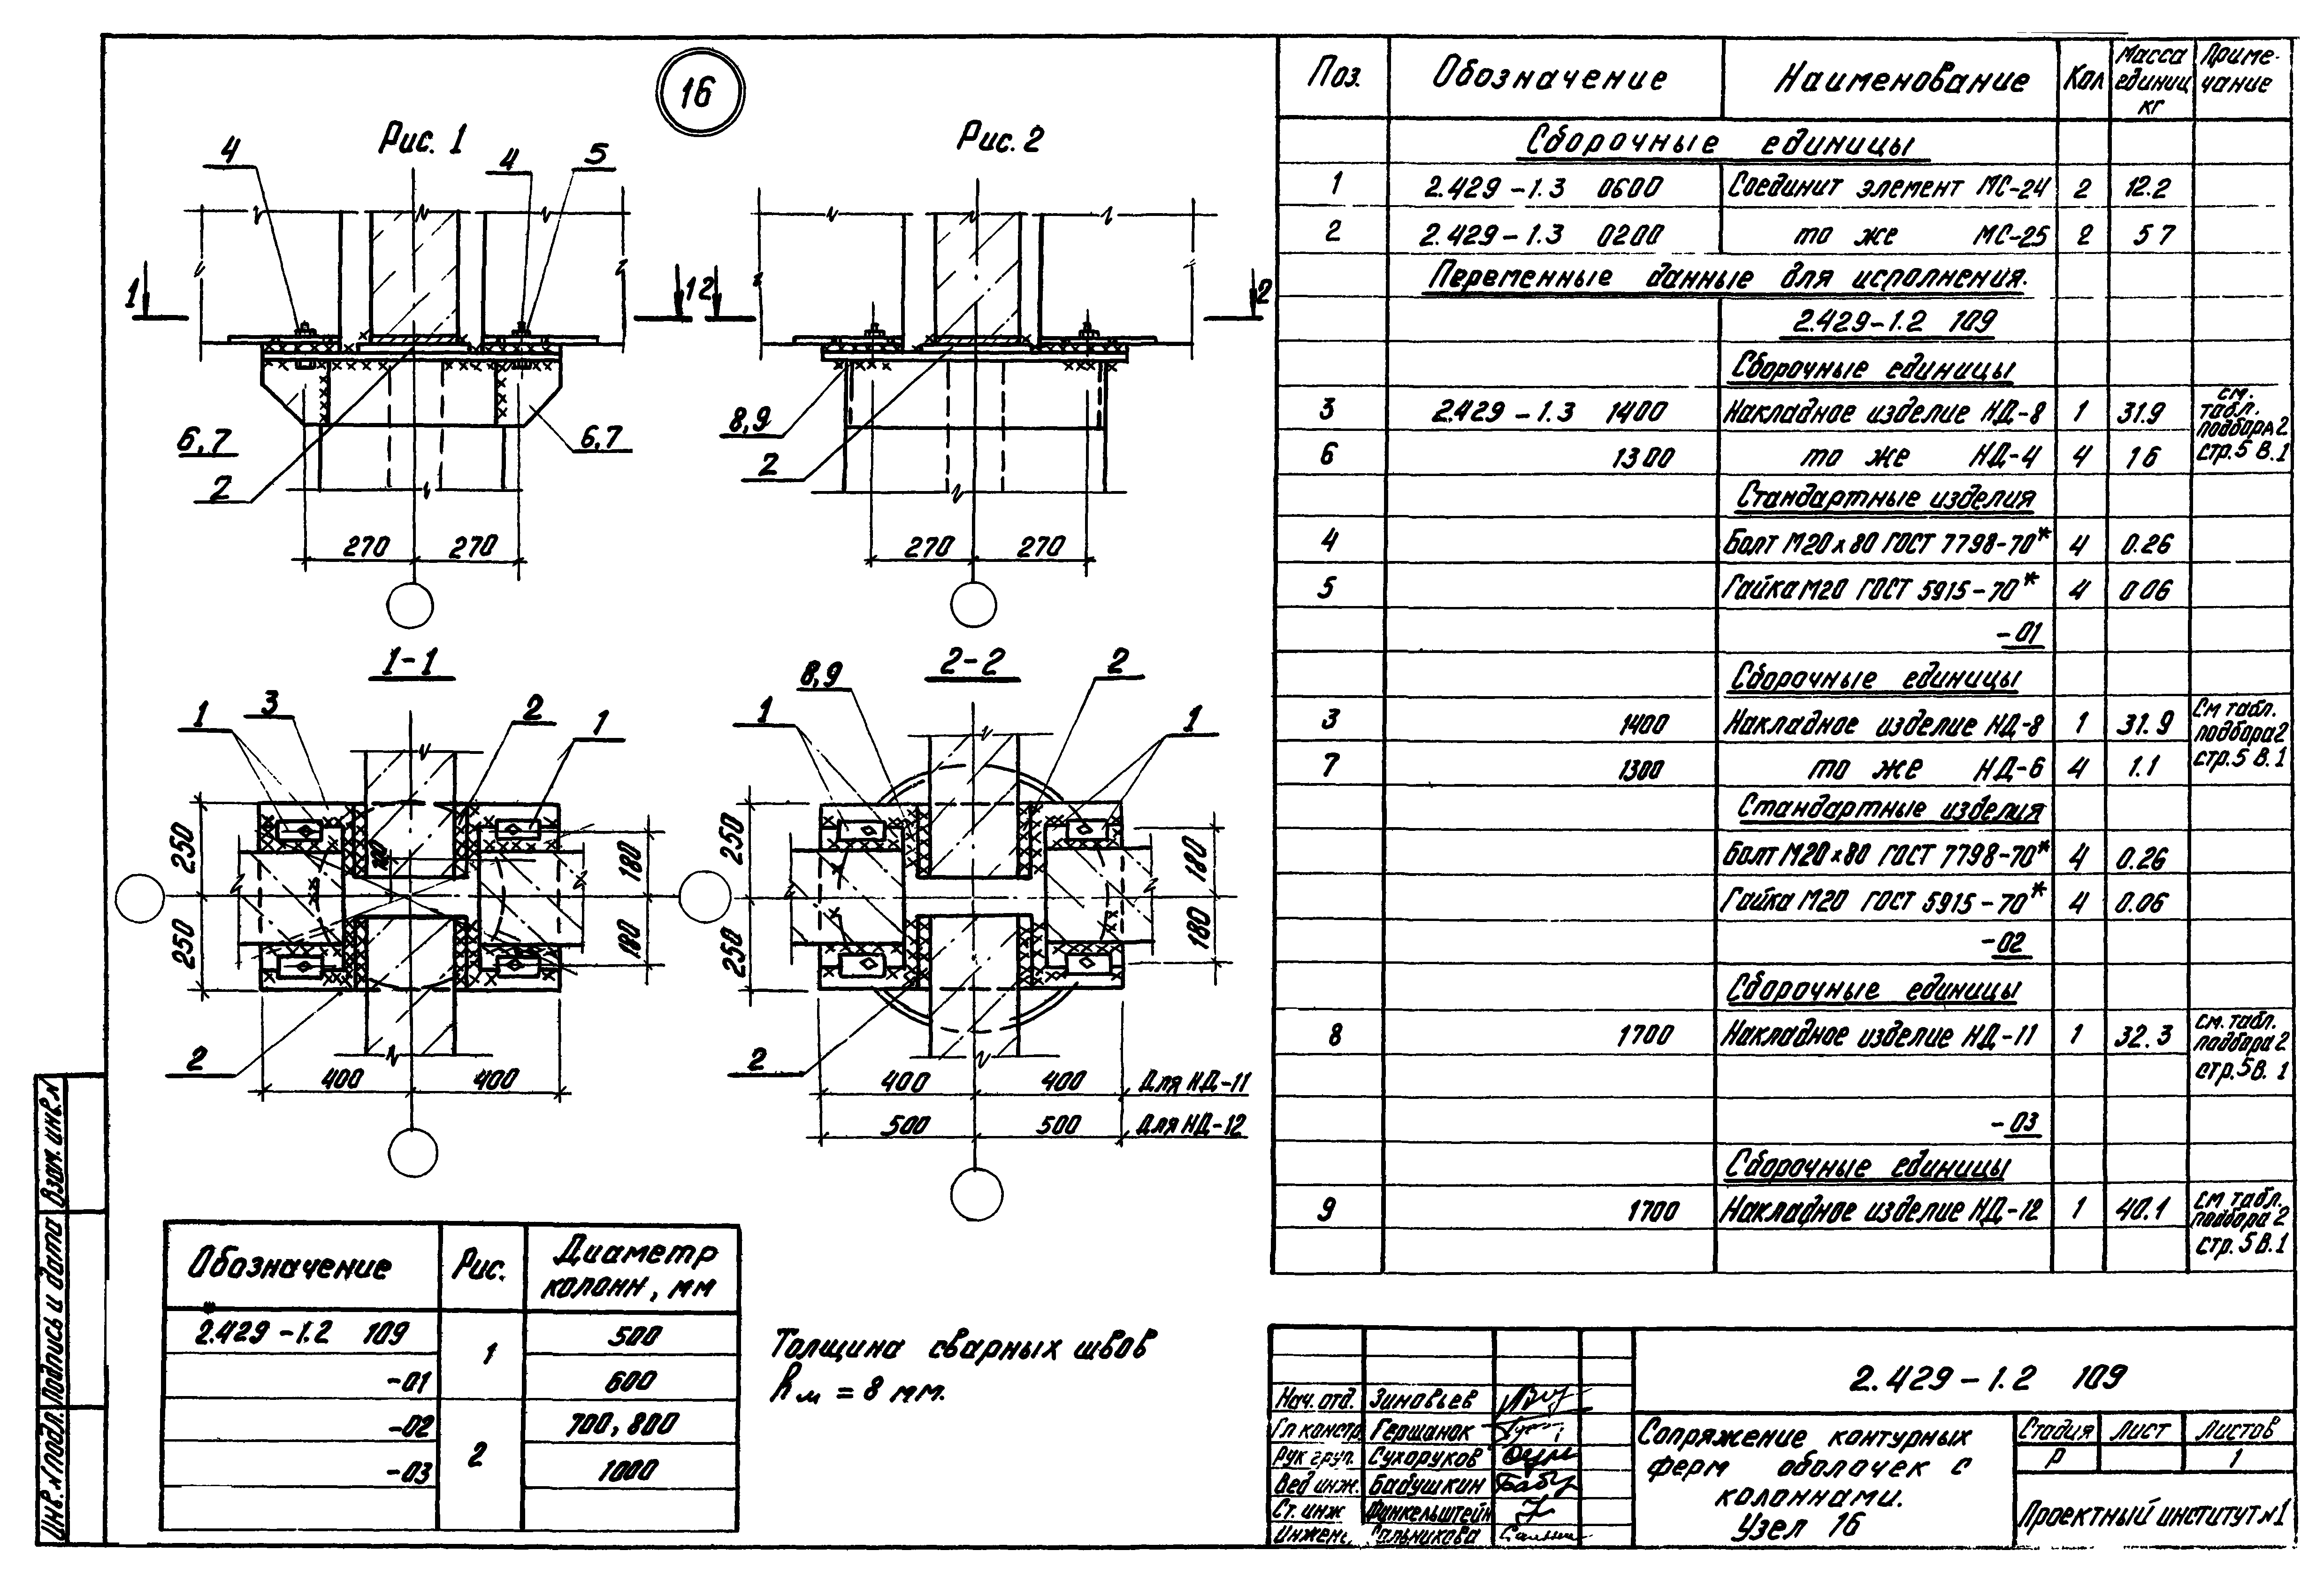 16
Рис. 1
Рис. 2
4
4
5
1
1
2
2
6,7
6,7
2
8,9
2
270
270
270
270
1-1
2-2
1
3
2
1
8,9
2
1
1
250
250
180
180
250
250
180
180
2
2
400
400
400
400
Для НД-11
500
500
Для НД-12
Обозначение
Рис.
Диаметр
колонн, мм
2.429-1.2 109
1
500
-01
600
-02
2
700, 800
-03
1000
Толщина сварных швов
hм = 8 мм.
Поз.
Обозначение
Наименование
Кол
Масса
единиц
кг
Приме-
чание
Сборочные единицы
1 2.429-1.3 0600 Соединит элемент МС-24 2 12.2
2 2.429-1.3 0200 то же МС-25 2 5 7
Переменные данные для исполнения.
2.429-1.2 109
Сборочные единицы
3 2.429-1.3 1400 Накладное изделие НД-8 1 31.9
см.
табл.
подбора 2
стр.5 В.1
6 1300 то же НД-4 4 1 6
Стандартные изделия
4 Болт М20х80 ГОСТ 7798-70* 4 0.26
5 Гайка М20 ГОСТ 5915-70* 4 0 06
-01
Сборочные единицы
3 1400 Накладное изделие НД-8 1 31.9
См табл.
подбора 2
стр.5 В.1
7 1300 то же НД-6 4 1.1
Стандартные изделия
Болт М20х80 ГОСТ 7798-70* 4 0.26
Гайка М20 ГОСТ 5915-70* 4 0.06
-02
Сборочные единицы
8 1700 Накладное изделие НД-11 1 32.3
см. табл.
подбора 2
стр.5 В. 1
-03
Сборочные единицы
9 1700 Накладное изделие НД-12 1 40.1
см табл.
подбора 2
стр.5 В.1
Нач. отд. Зиновьев
Гл констр. Гершанок
Рук груп. Сухоруков
Вед инж. Бабушкин
Ст. инж Финкельштейн
Инжен. Сальникова
2.429-1.2 109
Сопряжение контурных
ферм оболочек с
колоннами.
Узел 16
Стадия
Лист
Листов
Р
1
Проектный институт №1
Взам. инв. №
Подпись и дата
Инв. № подл.